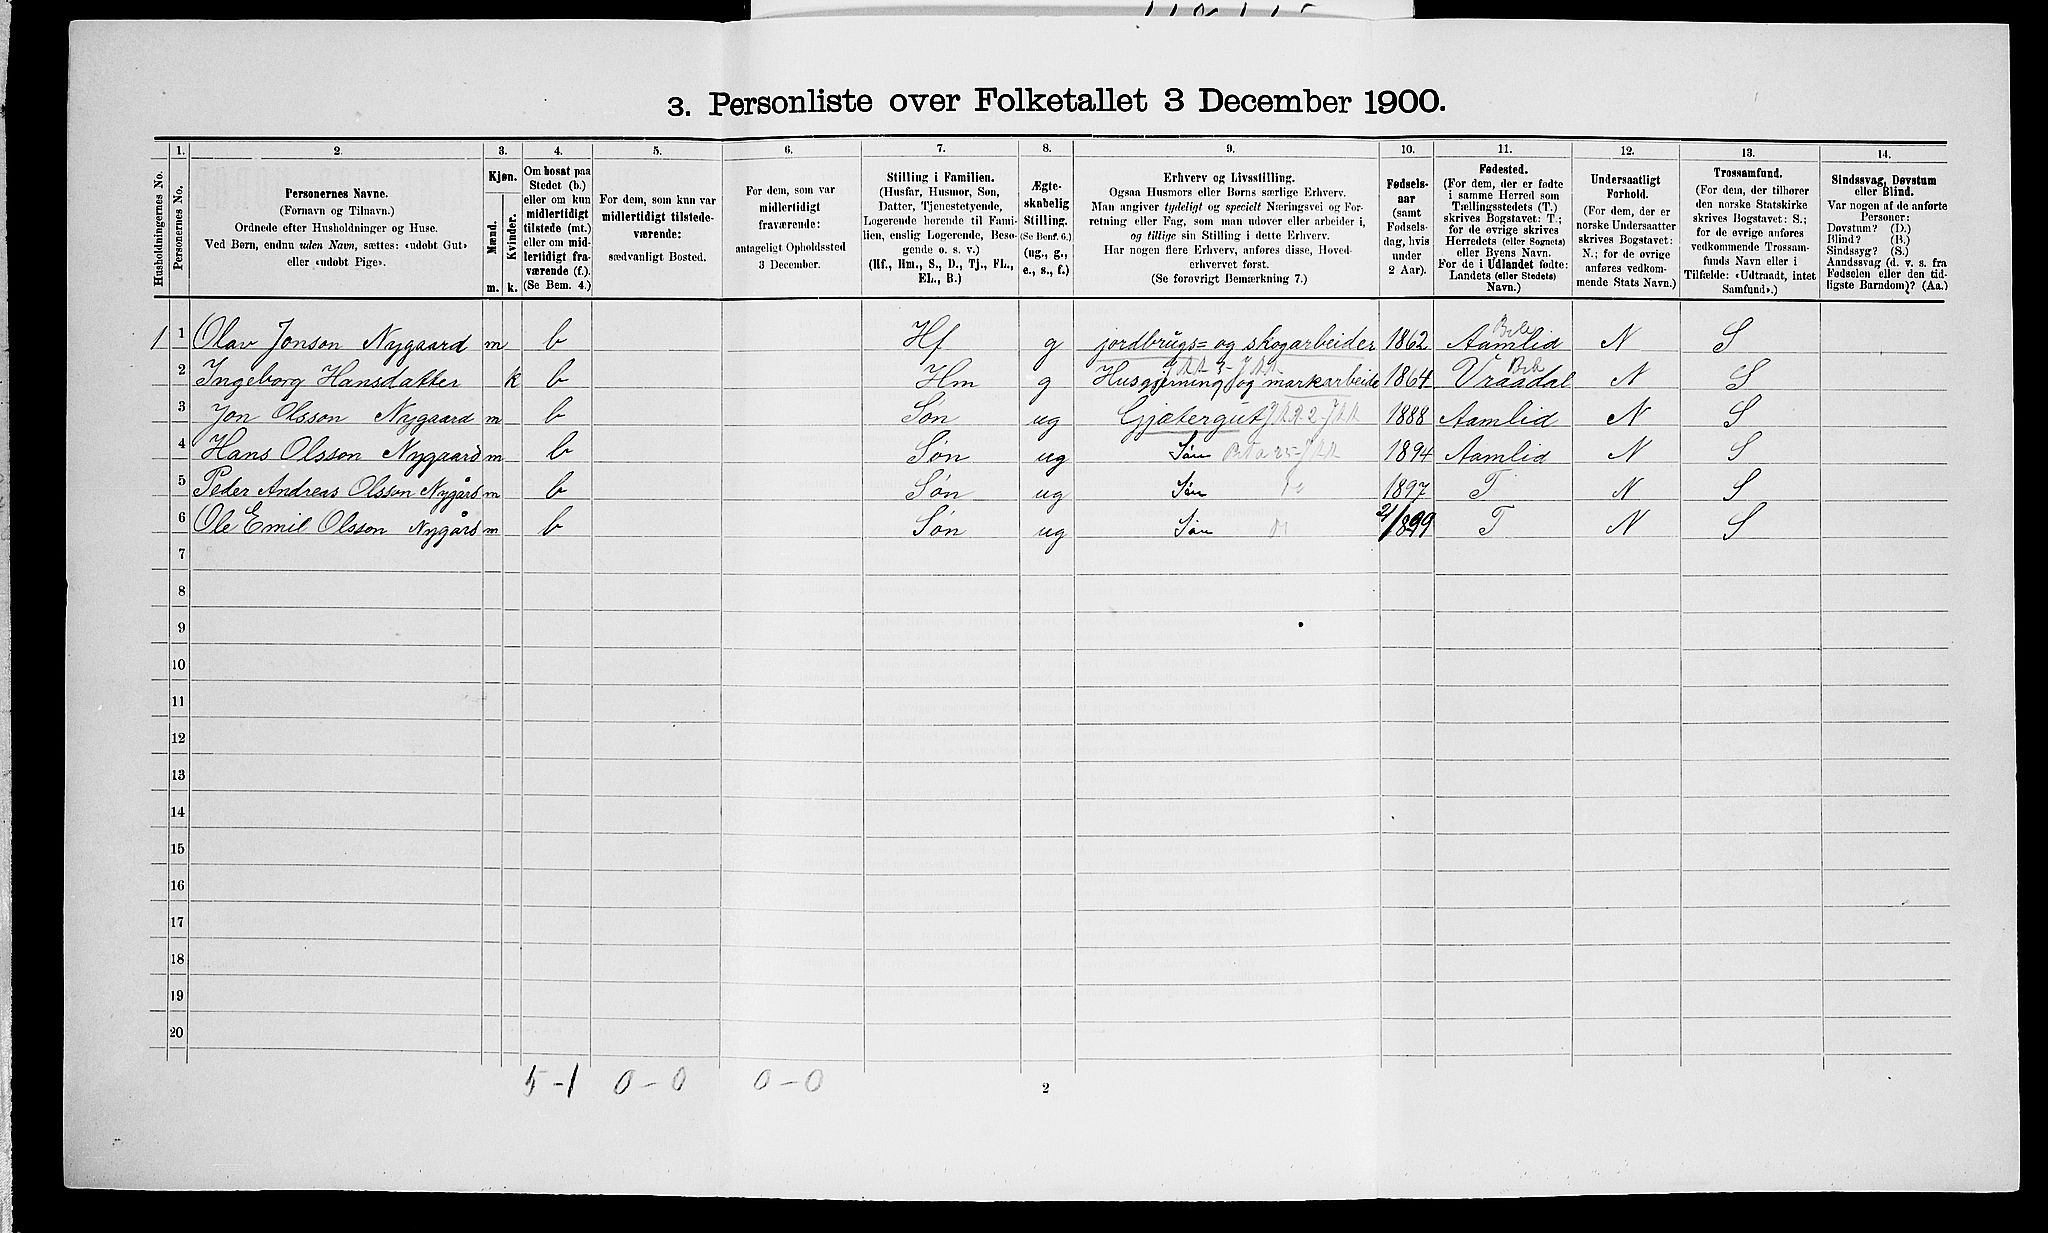 3. Personliste over Folketallet 3 December 1900.
Husholdningernes No.
1.
Personernes No.
2.
Personernes Navne.
(Fornavn og Tilnavn.)
Ordnede efter Husholdninger og Huse.
Ved Børn, endnu uden Navn, sættes: «udøbt Gut»
eller «udøbt Pige».
3.
Kjøn.
Mænd.
Kvinder.
m. k.
4.
Om bosat paa
Stedet (b.)
eller om kun
midlertidigt
tilstede (mt.)
eller om mid-
lertidigt fra-
værende (f.).
(Se Bem. 4.)
5.
For dem, som kun var
midlertidigt tilstede-
værende:
sædvanligt Bosted.
6.
For dem, som var
midlertidigt
fraværende:
antageligt Opholdssted
3 December.
7.
Stilling i Familien.
(Husfar, Husmor, Søn,
Datter, Tjenestetyende,
Logerende hørende til Fami-
lien, enslig Logerende, Besø-
gende o. s. v.)
(Hf., Hm., S., D., Tj., FL.,
EL., B.)
8.
Ægte-
skabelig
Stilling.
(Se Bem. 6.)
(ug., g.,
e., s., f.)
9.
Erhverv og Livsstilling.
Ogsaa Husmors eller Børns særlige Erhverv.
Man angiver tydeligt og specielt Næringsvei og For-
retning eller Fag, som man udøver eller arbeider i,
og tillige sin Stilling i dette Erhverv.
Har nogen flere Erhverv, anføres disse, Hoved-
erhvervet først.
(Se forøvrigt Bemærkning 7.)
10.
Fødsels-
aar
(samt
Fødsels-
dag, hvis
under
2 Aar).
11.
Fødested.
(For dem, der er fødte
i samme Herred som
Tællingsstedets (T.)
skrives Bogstavet: T.;
for de øvrige skrives
Herredets (eller Sognets)
eller Byens Navn.
For de i Udlandet fødte:
Landets (eller Stedets)
Navn.)
12.
Undersaatligt
Forhold.
(For dem, der er
norske Undersaatter
skrives Bogstavet:
N.; for de øvrige
anføres vedkom-
mende Stats Navn.)
13.
Trossamfund.
(For dem, der tilhører
den norske Statskirke
skrives Bogstavet: S.;
for de øvrige anføres
vedkommende Trossam-
funds Navn eller i
Tilfælde: «Udtraadt, intet
Samfund».)
14.
Sindssvag, Døvstum
eller Blind.
Var nogen af de anførte
Personer:
Døvstum? (D.)
Blind? (B.)
Sindssyg? (S.)
Aandssvag (d. v. s. fra
Fødselen eller den tid-
ligste Barndom)? (Aa.)
1 1 Olav Jonson Nygaard m b Hf g jordbrugs= og skogarbeider 1862 Aamlid N S
2 Ingeborg Hansdatter k b Hm g Husgjerning og markarbeide 1864 Vraadal N S
3 Jon Olsson Nygaard m b Søn ug Gjætergut 1888 Aamlid N S
4 Hans Olsson Nygaard m b Søn ug Søn 1894 Aamlid N S
5 Peder Andreas Olsson Nygård m b Søn ug Søn 1897 T N S
6 Ole Emil Olsson Nygård m b Søn ug Søn 1899 T N S
7
8
9
10
11
12
13
14
15
16
17
18
19
20
5-1 0-0 0-0
2